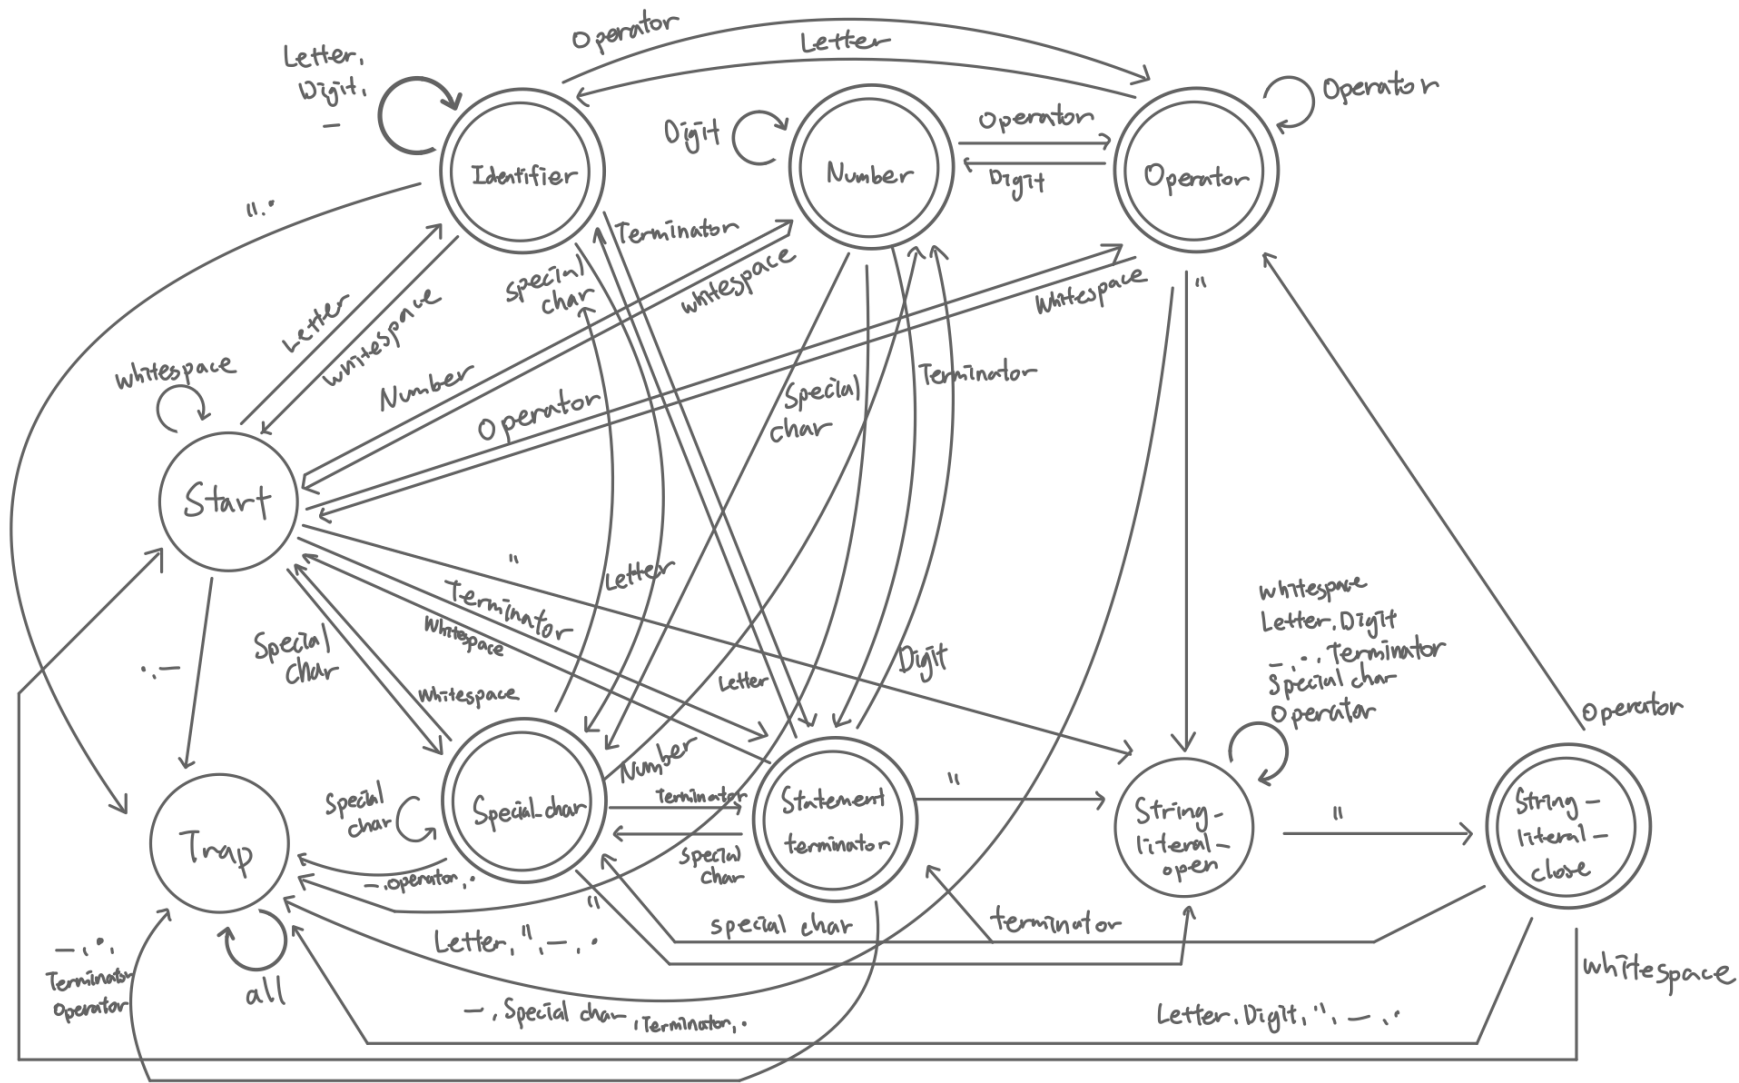 Operator
Letter
Letter,
Digit,
_
Operator
Digit
Operator
Identifier
Number
Operator
Digit
".
Terminator
special
char
whitespace
Whitespace
"
Letter
whitespace
whitespace
Number
Operator
Special
char
Terminator
Start
"
Letter
Terminator
Whitespace
Special
char
. _
Whitespace
Letter
Digit
whitespace
Letter. Digit
_ , . , Terminator
Special char
Operator
Operator
Number
Special
char
Special_char
Terminator
Statement
terminator
"
String-
literal-
open
"
String-
literal-
close
Trap
Special
char
_ , Operator, .
"
special char
terminator
Letter, ", _ , .
_ , . ,
Terminator
Operator
all
_ , Special char, Terminator, .
Letter. Digit, ", _ , .
Whitespace